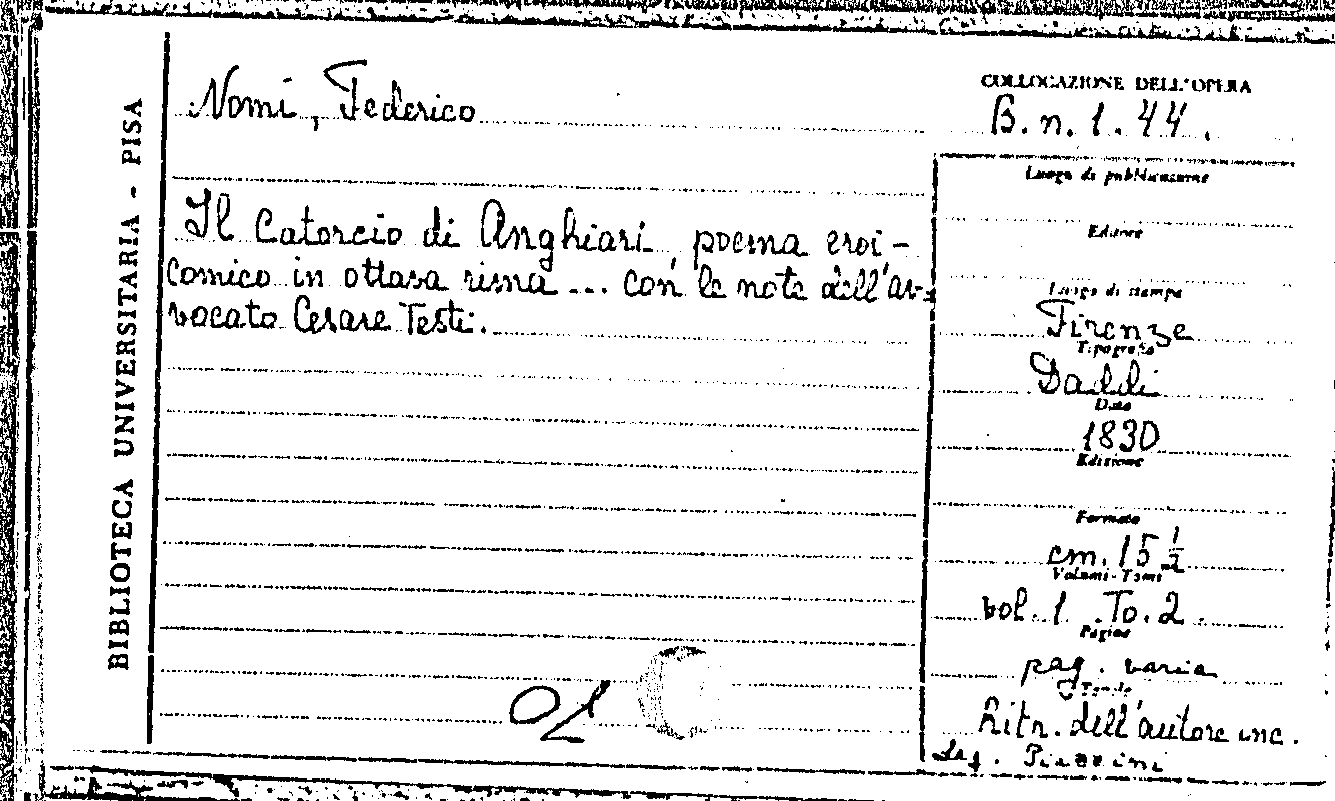 BIBLIOTECA UNIVERSITARIA - PISA
Nomi, Federico
Il Catorcio di Anghiari, poema eroi-
comico in ottava rima ... con le note dell'av-
vocato Cesare Testi.
COLLOCAZIONE DELL'OPERA
B. n. 1. 44.
Luogo di pubblicazione
Editore
Luogo di stampa
Firenze
Tipografo
Daddi
Data
1830
Edizione
Formato
cm. 15 1/2
Volumi-Tomi
vol. 1. To. 2.
Pagine
pag. varia
Tavole
Ritr. dell'autore inc.
Leg. Piazzini